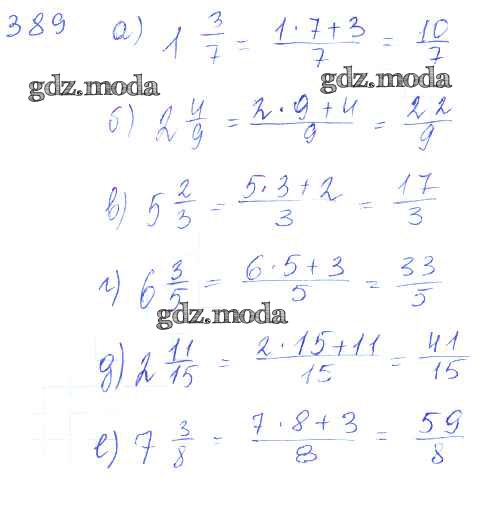 389 а) 1 3/7 = (1·7+3)/7 = 10/7
gdz.moda gdz.moda
б) 2 4/9 = (2·9+4)/9 = 22/9
в) 5 2/3 = (5·3+2)/3 = 17/3
г) 6 3/5 = (6·5+3)/5 = 33/5
gdz.moda
д) 2 11/15 = (2·15+11)/15 = 41/15
е) 7 3/8 = (7·8+3)/8 = 59/8